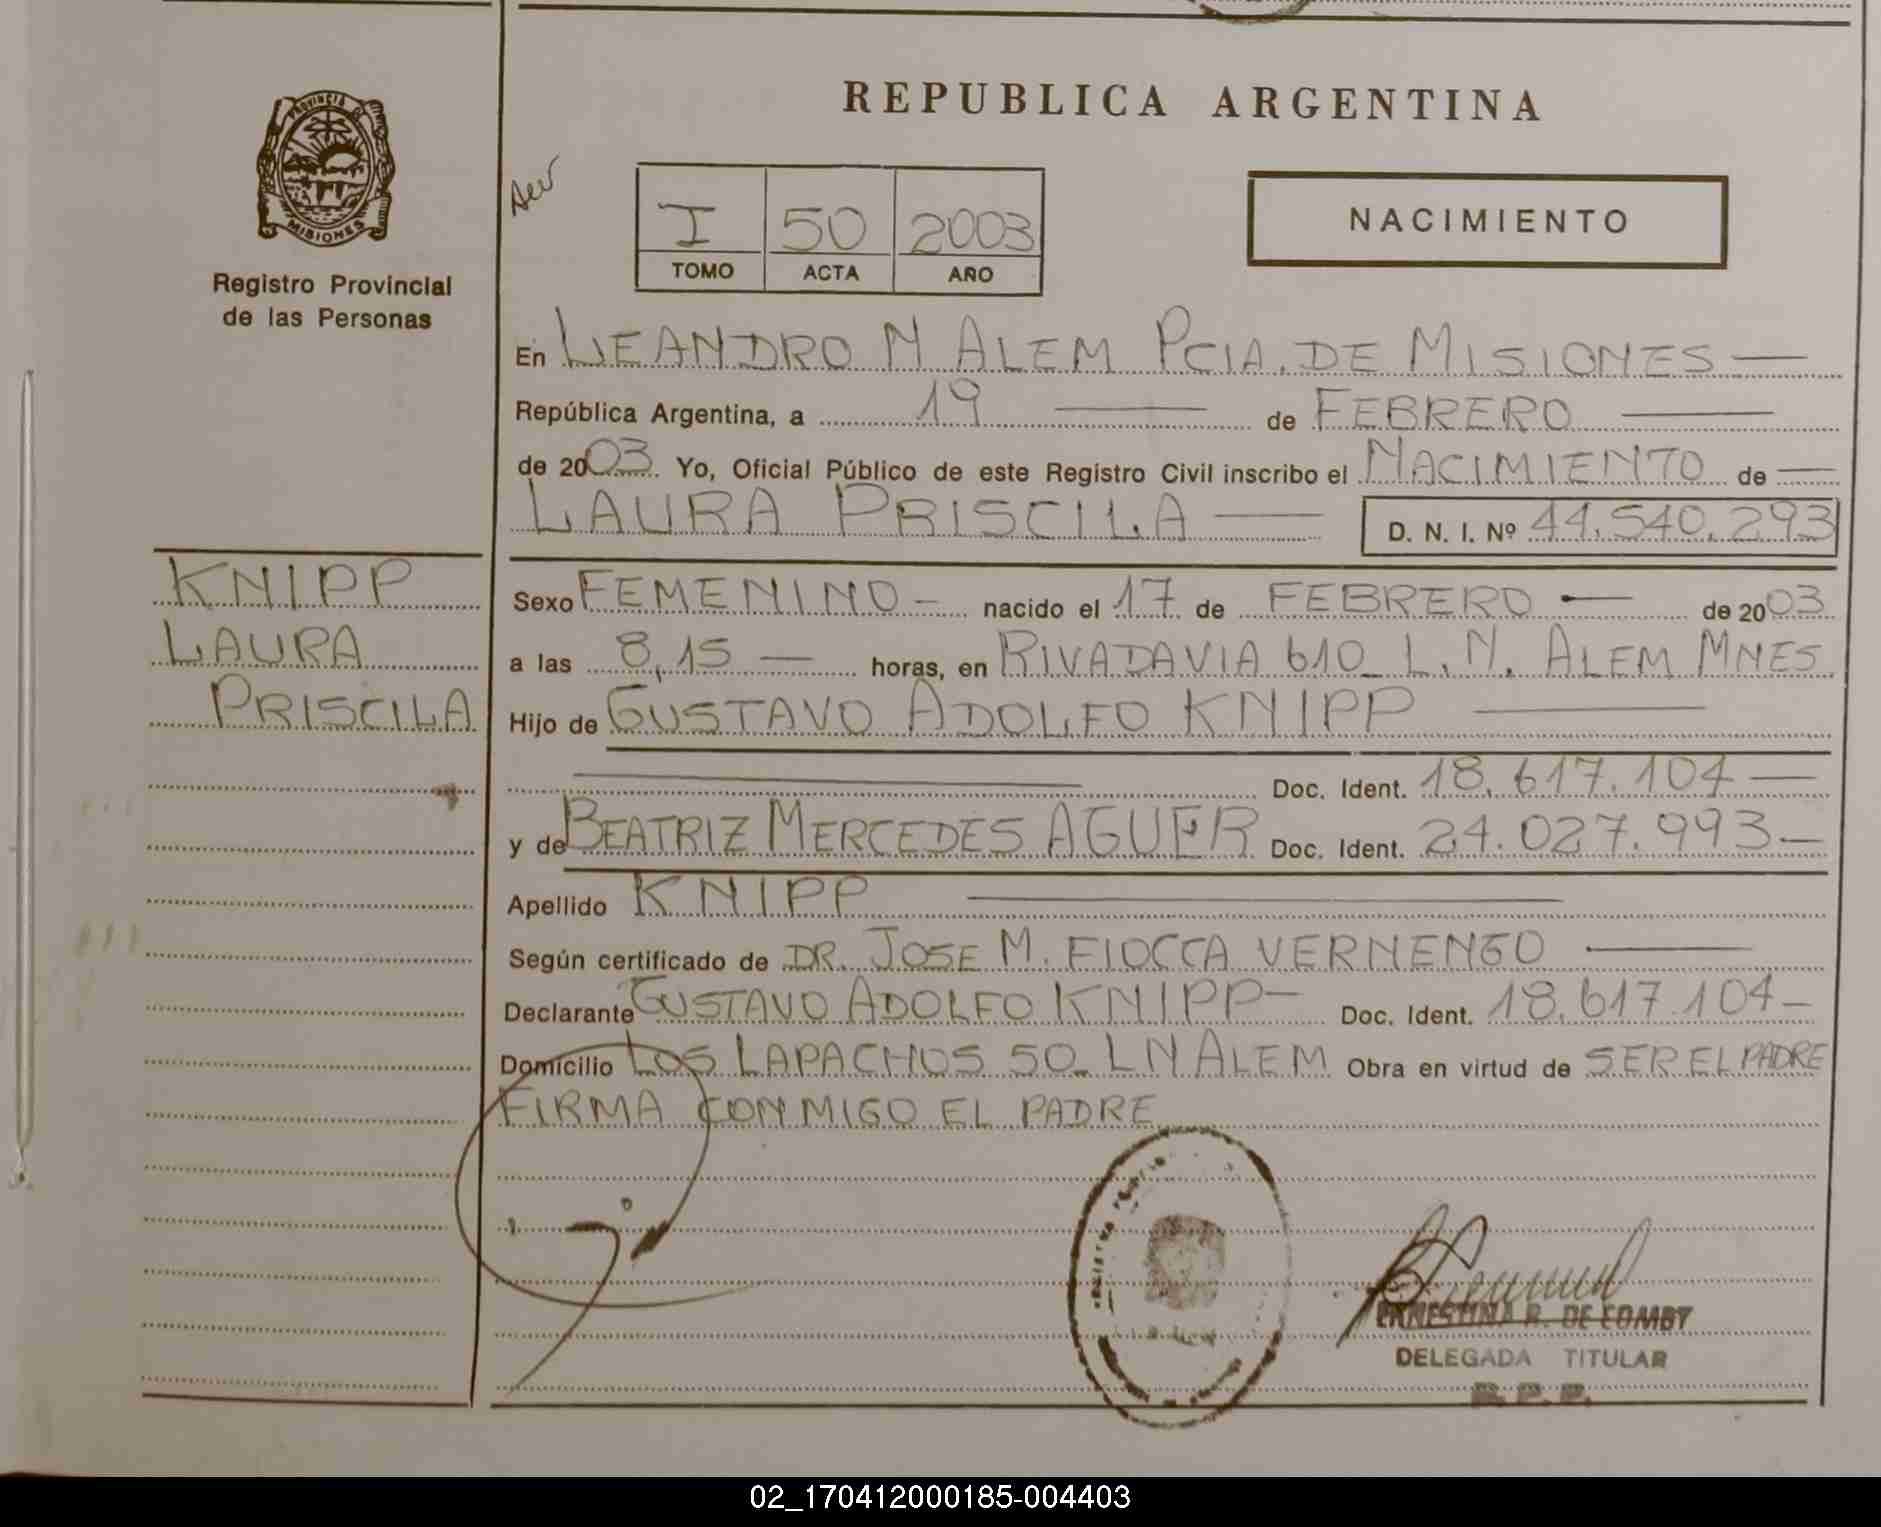 REPUBLICA ARGENTINA
PROVINCIA DE
MISIONES
Registro Provincial
de las Personas
I 50 2003
TOMO ACTA AÑO
NACIMIENTO
En LEANDRO N ALEM PCIA. DE MISIONES
República Argentina, a 19 de FEBRERO
de 2003 Yo, Oficial Público de este Registro Civil inscribo el NACIMIENTO de
LAURA PRISCILA D. N. I. Nº 44.540.293
KNIPP
LAURA
PRISCILA
Sexo FEMENINO nacido el 17 de FEBRERO de 2003
a las 8,15 horas, en RIVADAVIA 610 L. N. ALEM MNES
Hijo de GUSTAVO ADOLFO KNIPP
Doc. Ident. 18.617.104
y de BEATRIZ MERCEDES AGUER Doc. Ident. 24.027.993
Apellido KNIPP
Según certificado de DR. JOSE M. FIOCCA VERNENGO
Declarante GUSTAVO ADOLFO KNIPP Doc. Ident. 18.617.104
Domicilio LOS LAPACHOS 50 LN ALEM Obra en virtud de SER EL PADRE
FIRMA CONMIGO EL PADRE
ERNESTINA R. DE COMBY
DELEGADA TITULAR
R. P. P.
02_170412000185-004403